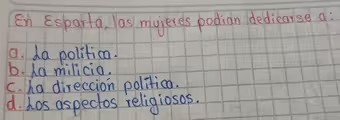 En Esparta, las mujeres podian dedicarse a:
a. La politica.
b. La milicia.
c. La dirección politica.
d. Los aspectos religiosos.